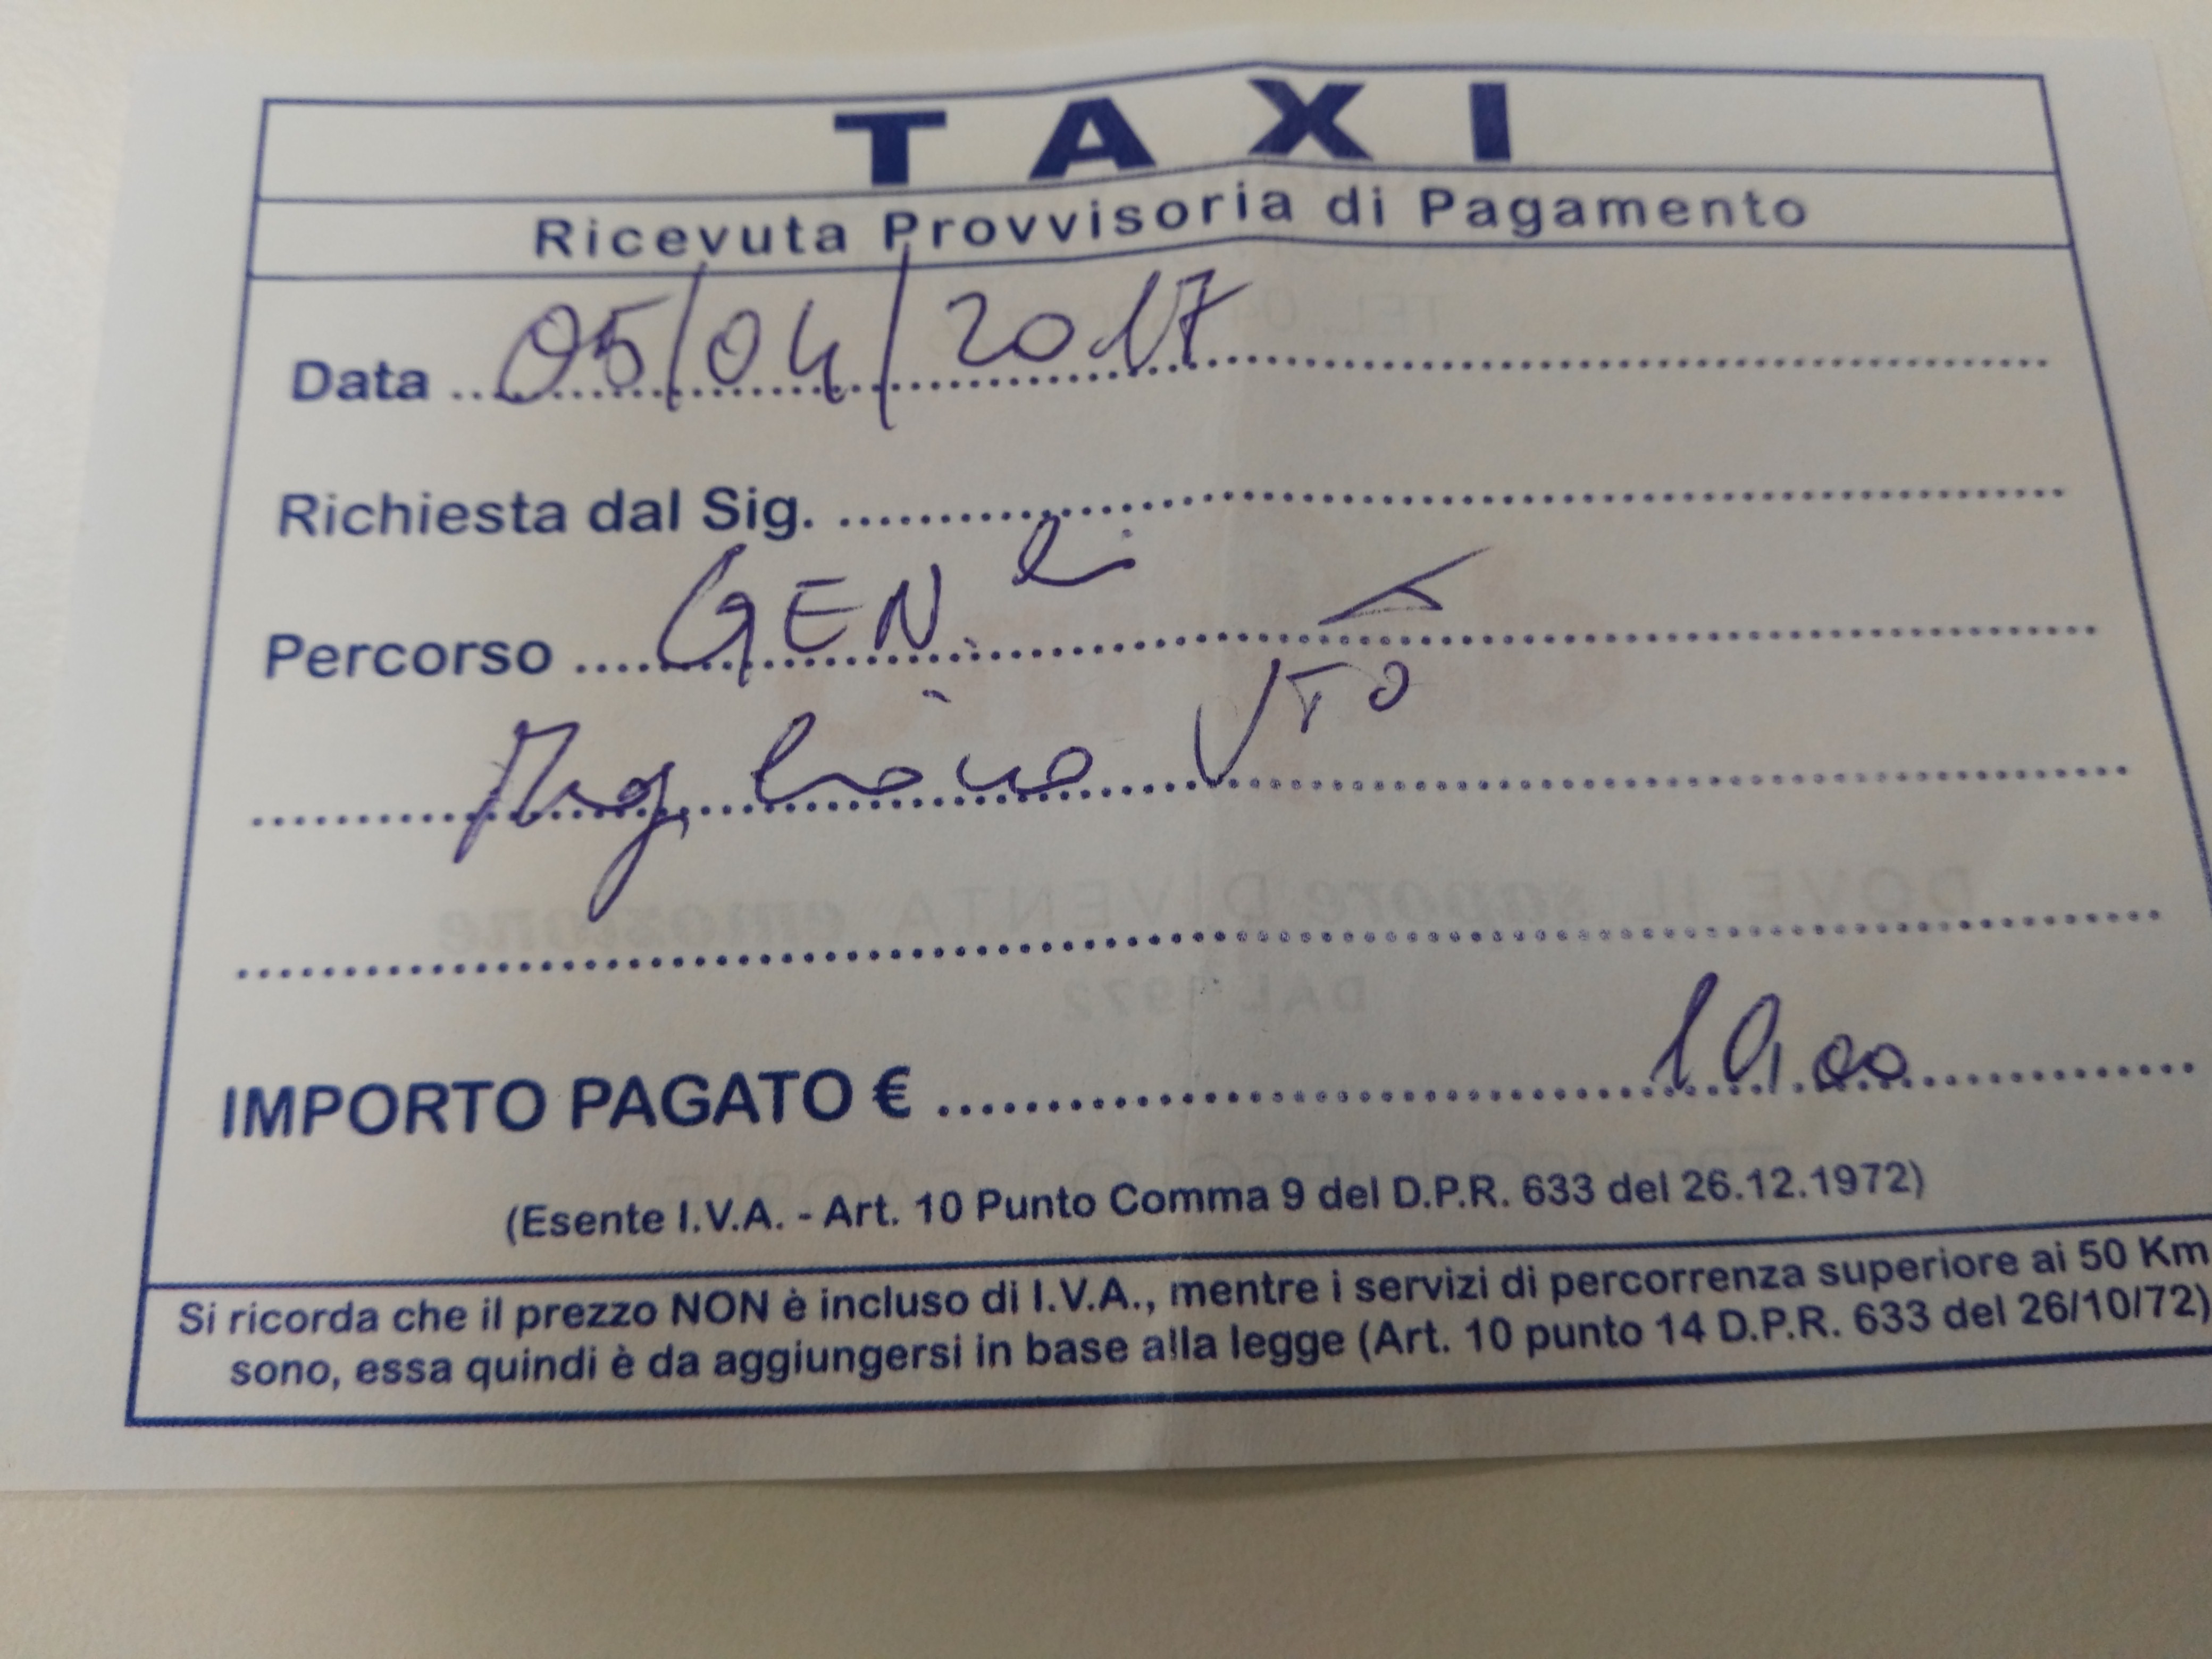 TAXI
Ricevuta Provvisoria di Pagamento
Data 05/04/2017
Richiesta dal Sig.
Percorso GEN.li
Mogliano VTO
IMPORTO PAGATO €
(Esente I.V.A. - Art. 10 Punto Comma 9 del D.P.R. 633 del 26.12.1972)
Si ricorda che il prezzo NON è incluso di I.V.A., mentre i servizi di percorrenza superiore ai 50 Km
sono, essa quindi è da aggiungersi in base alla legge (Art. 10 punto 14 D.P.R. 633 del 26/10/72)
DOVE IL sapore DIVENTA emozione
DAL 1972